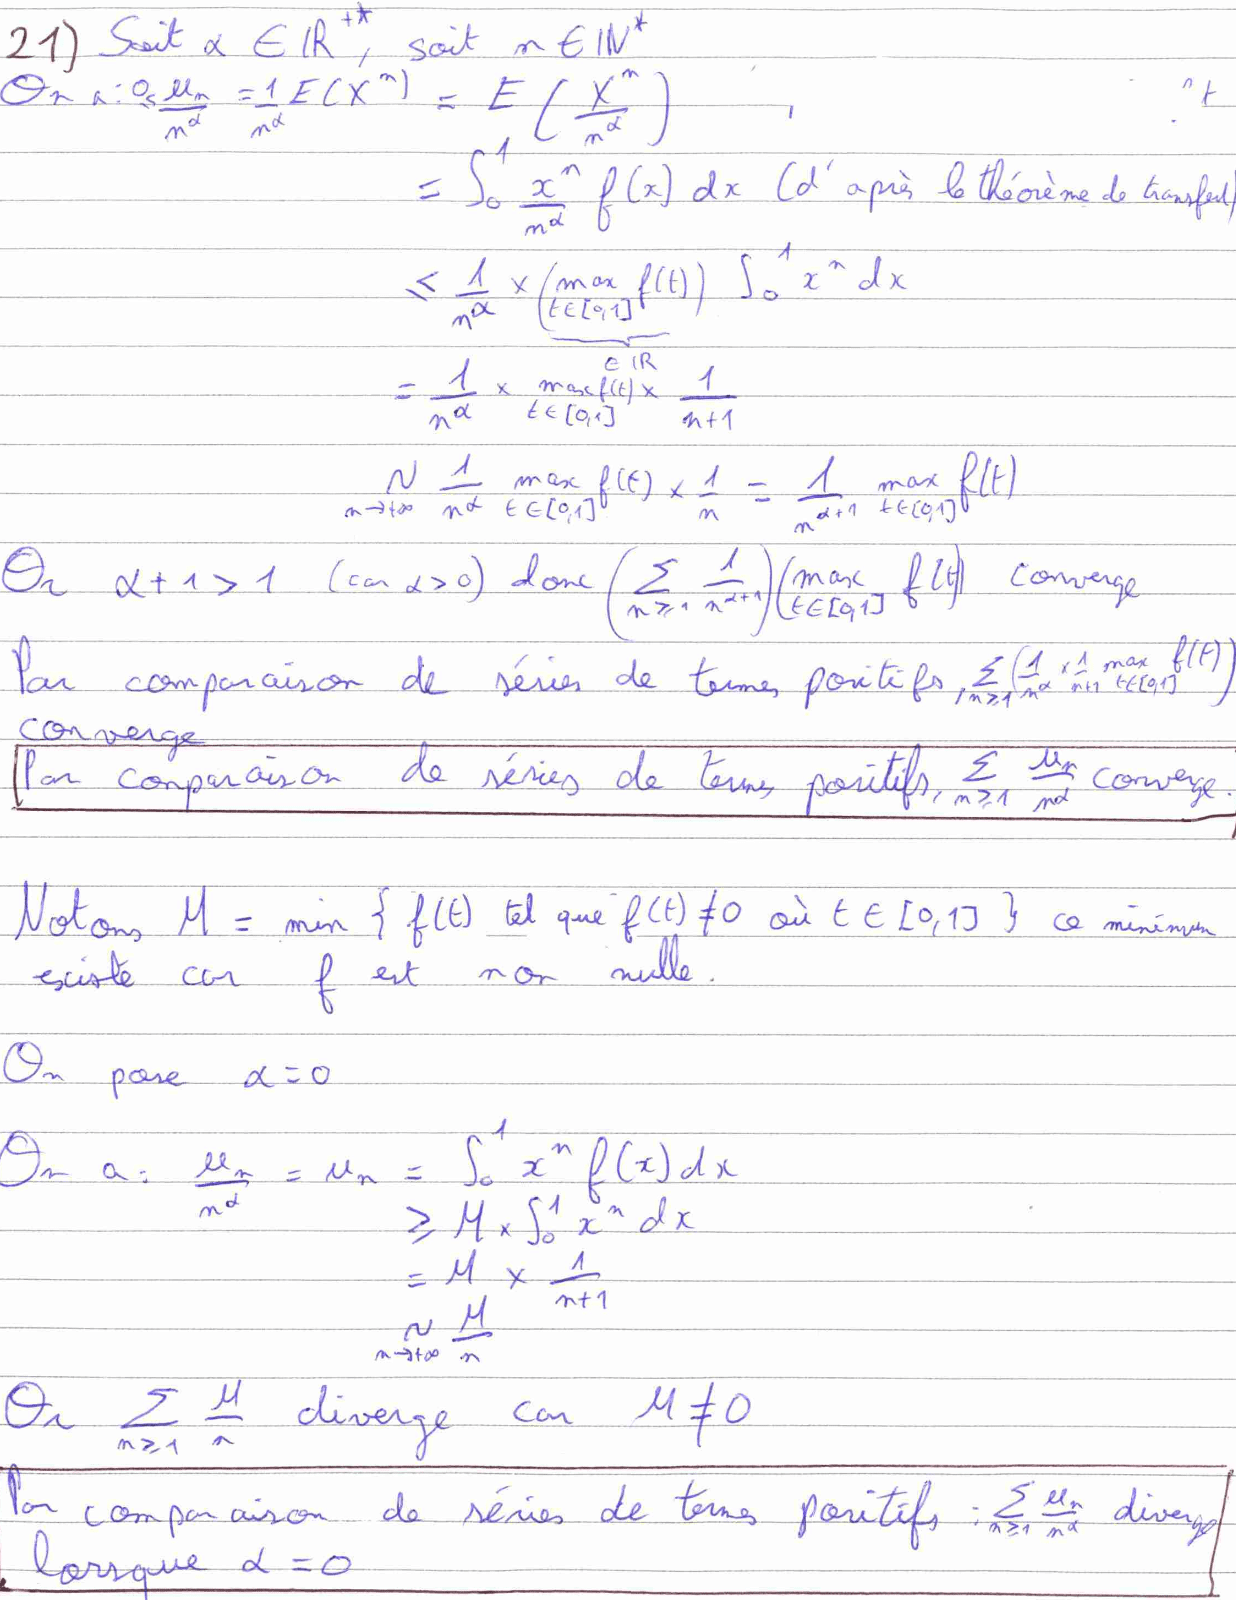 21) Soit α ∈ ℝ⁺*, soit n ∈ ℕ*
On a : 0 ≤ uₙ/n^α = 1/n^α E(Xⁿ) = E(Xⁿ/n^α)
= ∫₀¹ xⁿ/n^α f(x) dx (d'après le théorème de transfert)
≤ 1/n^α × (max_{t∈[0,1]} f(t)) ∫₀¹ xⁿ dx
∈ ℝ
= 1/n^α × max_{t∈[0,1]} f(t) × 1/(n+1)
~_{n→+∞} 1/n^α max_{t∈[0,1]} f(t) × 1/n = 1/n^{α+1} max_{t∈[0,1]} f(t)
Or α+1 > 1 (car α > 0) donc (∑_{n≥1} 1/n^{α+1}) (max_{t∈[0,1]} f(t)) converge
Par comparaison de séries de termes positifs, ∑_{n≥1} (1/n^α × 1/(n+1) max_{t∈[0,1]} f(t))
converge
Par comparaison de séries de termes positifs, ∑_{n≥1} uₙ/n^α converge.
Notons M = min { f(t) tel que f(t) ≠ 0 où t ∈ [0,1] } ce minimum
existe car f est non nulle.
On pose α = 0
On a : uₙ/n^α = uₙ = ∫₀¹ xⁿ f(x) dx
≥ M × ∫₀¹ xⁿ dx
= M × 1/(n+1)
~_{n→+∞} M/n
Or ∑_{n≥1} M/n diverge car M ≠ 0
Par comparaison de séries de termes positifs : ∑_{n≥1} uₙ/n^α diverge
lorsque α = 0